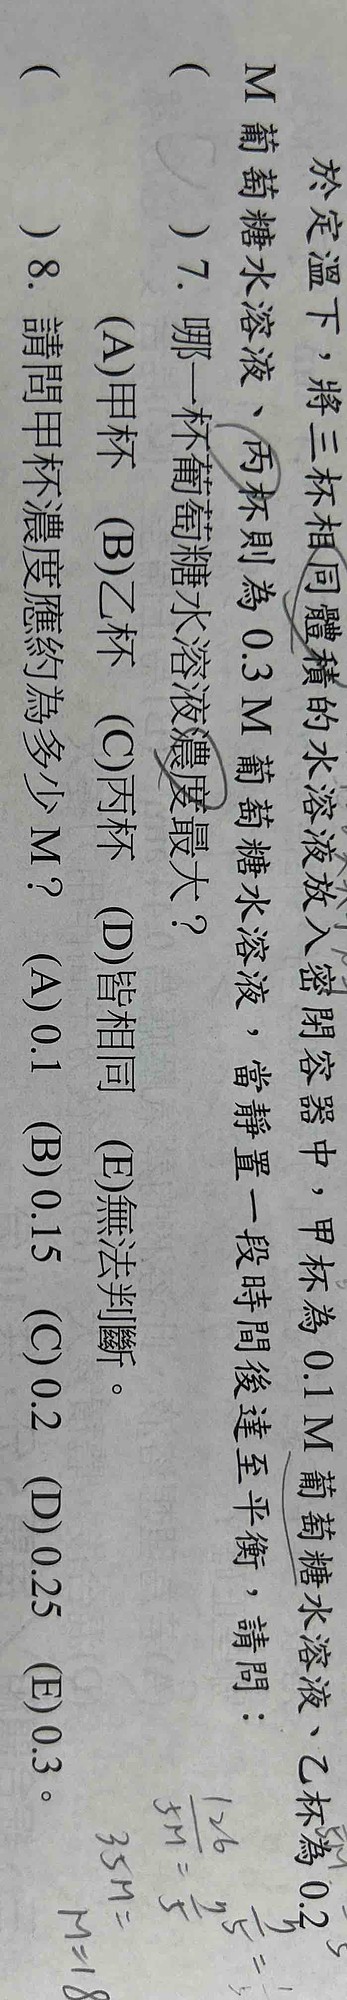 於定溫下，將三杯相同體積的水溶液放入密閉容器中，甲杯為 0.1 M 葡萄糖水溶液、乙杯為 0.2
M 葡萄糖水溶液、丙杯則為 0.3 M 葡萄糖水溶液，當靜置一段時間後達至平衡，請問：
(　　) 7. 哪一杯葡萄糖水溶液濃度最大？
(A)甲杯　(B)乙杯　(C)丙杯　(D)皆相同　(E)無法判斷。
(　　) 8. 請問甲杯濃度應約為多少 M？　(A) 0.1　(B) 0.15　(C) 0.2　(D) 0.25　(E) 0.3。
35M=
M=18